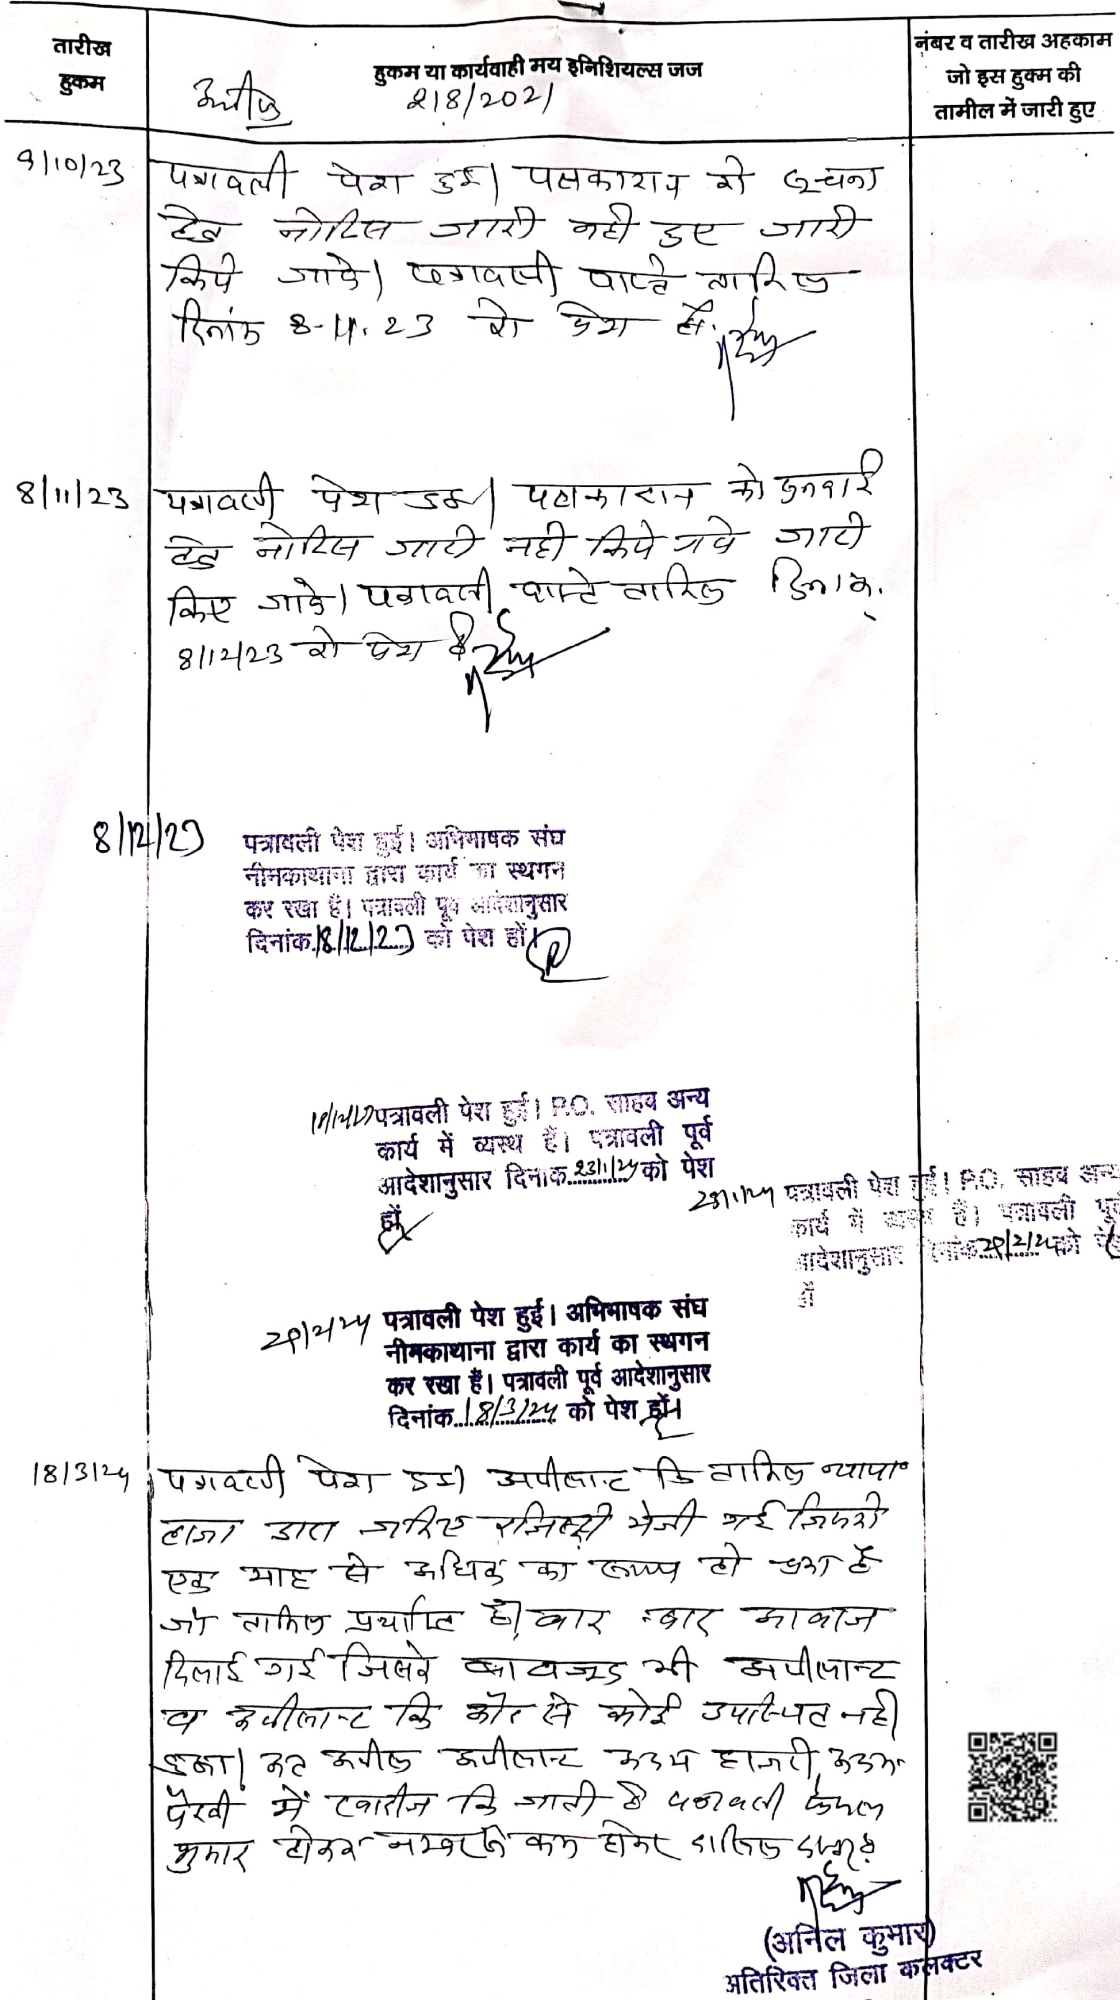 तारीख
हुकम
हुकम या कार्यवाही मय इनिशियल्स जज
नंबर व तारीख अहकाम
जो इस हुक्म की
तामील में जारी हुए
अपील
218/2021
9/10/23
पत्रावली पेश हुई। पक्षकारान को सूचना
हेतु नोटिस जारी नही हुए जारी
किये जावे। पत्रावली वास्ते तामिल
दिनांक 8-11-23 को पेश हो.
8/11/23
पत्रावली पेश हुई। पक्षकारान को सुनवाई
हेतु नोटिस जारी नही किये गये जारी
किए जावे। पत्रावली वास्ते तामिल दिनांक
8/12/23 को पेश हो
8/12/23
पत्रावली पेश हुई। अभिभाषक संघ
नीमकाथाना द्वारा कार्य का स्थगन
कर रखा है। पत्रावली पूर्व आदेशानुसार
दिनांक 18/12/23 को पेश हों।
18/12/23 पत्रावली पेश हुई। P.O. साहब अन्य
कार्य में व्यस्थ हैं। पत्रावली पूर्व
आदेशानुसार दिनांक 23/1/24 को पेश
हों
23/1/24 पत्रावली पेश हुई। P.O. साहब अन्य
कार्य में व्यस्थ हैं। पत्रावली पूर्व
आदेशानुसार दिनांक 29/2/24 को
हों
29/2/24 पत्रावली पेश हुई। अभिभाषक संघ
नीमकाथाना द्वारा कार्य का स्थगन
कर रखा है। पत्रावली पूर्व आदेशानुसार
दिनांक 18/3/24 को पेश हों।
18/3/24
पत्रावली पेश हुई। अपीलान्ट कि तामिल न्याया०
हाजा द्वारा जरिए रजिस्ट्री भेजी गई जिसको
एक माह से अधिक का समय हो चुका है
जो तामिल पर्याप्त है। बार-बार आवाज
दिलाई गई जिसके बावजूद भी अपीलान्ट
व अपीलान्ट कि और से कोई उपस्थित नही
हुआ। अतः अपील अपीलान्ट अदम हाजरी, अदम
पैरवी में खारीज कि जाती है पत्रावली फैसल
शुमार होकर नम्बर से कम होकर दाखिल दफ्तर
(अनिल कुमार)
अतिरिक्त जिला कलक्टर